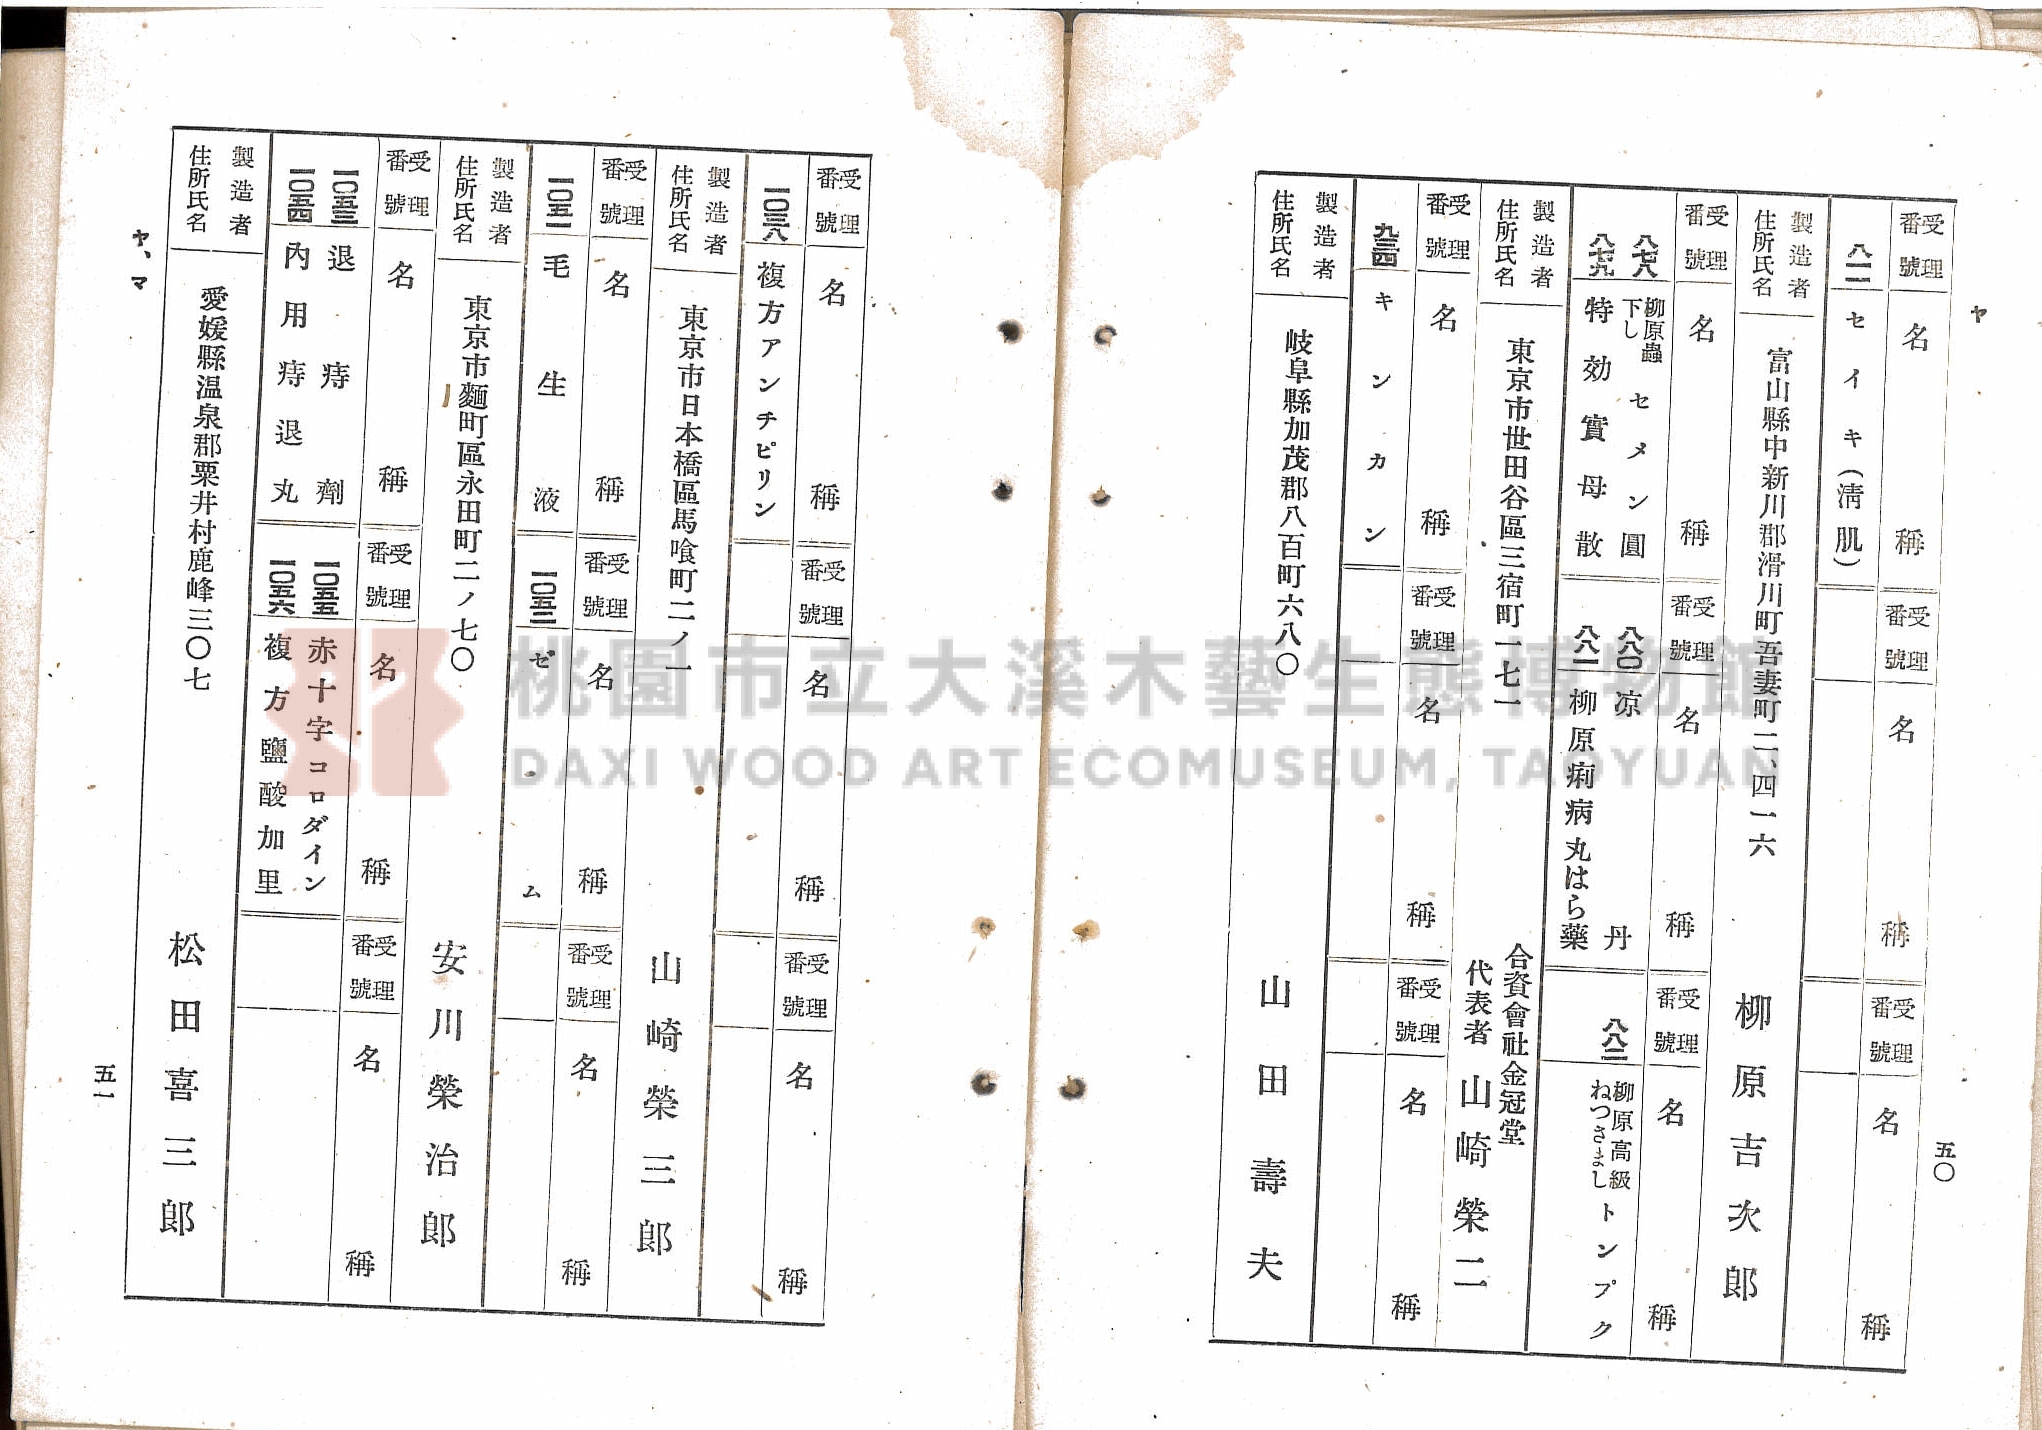 ヤ
五〇
受理番號 名稱 受理番號 名稱 受理番號 名稱
八一一 セイキ(淸肌)
製造者住所氏名 富山縣中新川郡滑川町吾妻町二、四一六 柳原吉次郎
受理番號 名稱 受理番號 名稱 受理番號 名稱
八七八 柳原蟲下し セメン圓 八八〇 凉丹 八八二 柳原高級ねつさまし トンプク
八七九 特効實母散 八八一 柳原痢病丸はら藥
製造者住所氏名 東京市世田谷區三宿町一七一 合資會社金冠堂 代表者 山崎榮二
受理番號 名稱 受理番號 名稱 受理番號 名稱
九三四 キンカン
製造者住所氏名 岐阜縣加茂郡八百町六八〇 山田壽夫
受理番號 名稱 受理番號 名稱 受理番號 名稱
一〇三八 複方アンチピリン
製造者住所氏名 東京市日本橋區馬喰町二ノ一 山崎榮三郎
受理番號 名稱 受理番號 名稱 受理番號 名稱
一〇五一 毛生液 一〇五二 ゼーム
製造者住所氏名 東京市麵町區永田町二ノ七〇 安川榮治郎
受理番號 名稱 受理番號 名稱 受理番號 名稱
一〇五三 退痔劑 一〇五五 赤十字コロダイン
一〇五四 內用痔退丸 一〇五六 複方鹽酸加里
製造者住所氏名 愛媛縣温泉郡粟井村鹿峰三〇七 松田喜三郎
ヤ、マ
五一
桃園市立大溪木藝生態博物館
DAXI WOOD ART ECOMUSEUM, TAOYUAN